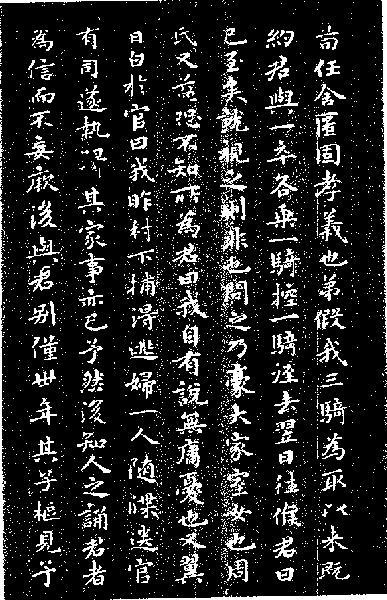 苟任舍匿固孝義也弟假我三騎為取以来既
約君與一卒各乗一騎控一騎逕去翌日往候君曰
已至矣就視之則非也問之乃豪大家室女也周
氏又益恐不知所為君曰我自有說無庸憂也又翼
日白於官曰我昨村下捕淂逃婦一人随牒送官
有司遂執其家事亦已予然後知人之誦君者
為信而不妄厥後與君别僅卅年其子樞見予